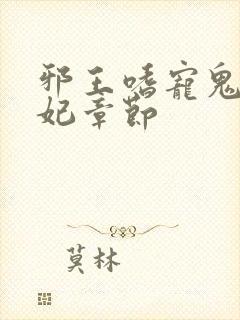 邪王嗜寵鬼
妃章節
莫林